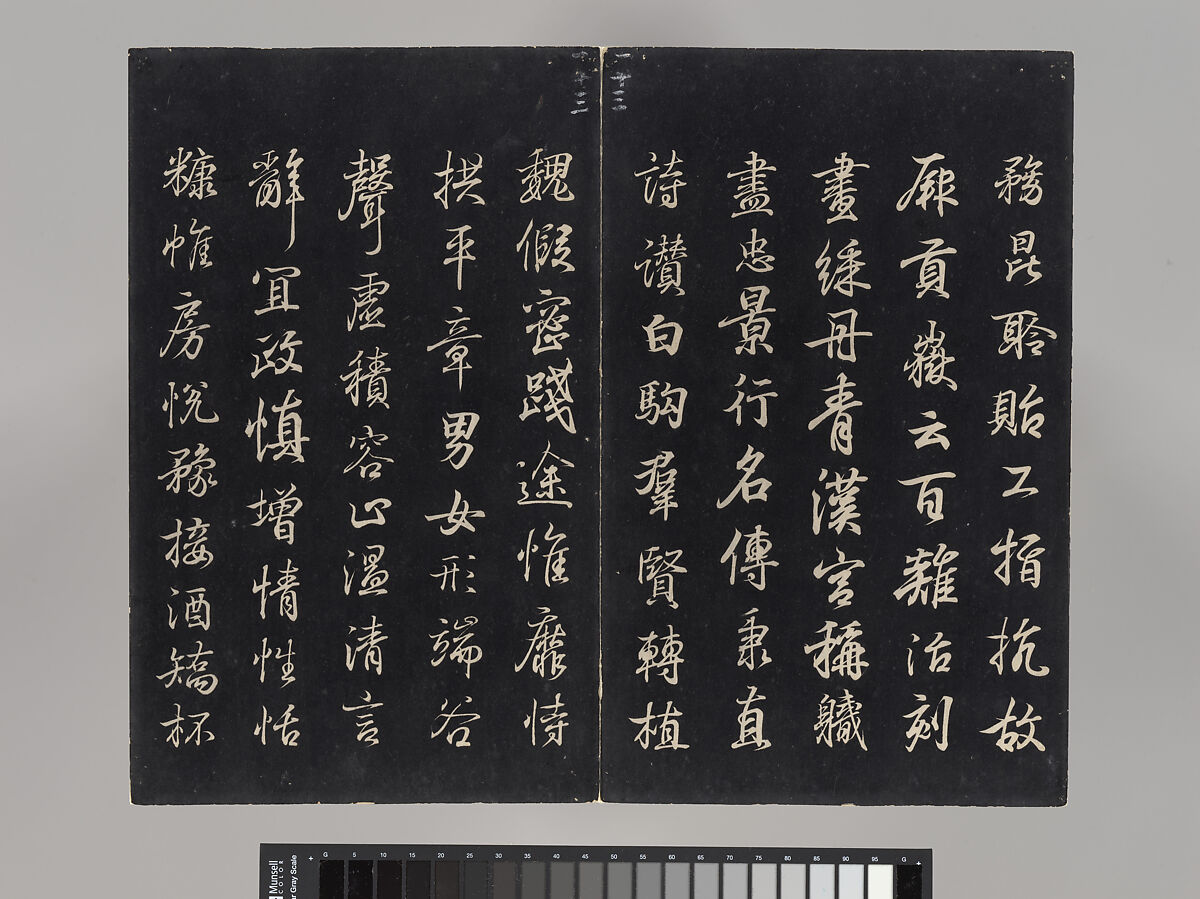 務昆聆貽工指抗故
厥貢嶽云百難治刻
畫綵丹青漢宮稱職
盡忠景行名傳秉直
詩讚白駒羣賢轉植
魏假密踐途惟靡恃
拱平章男女形端谷
聲虛積容止溫清言
辭宜政慎增情性恬
糠帷房悅豫接酒矯杯
Munsell
COLOR
Gray Scale
G 5 10 15 20 25 30 35 40 45 50 55 60 65 70 75 80 85 90 95 G